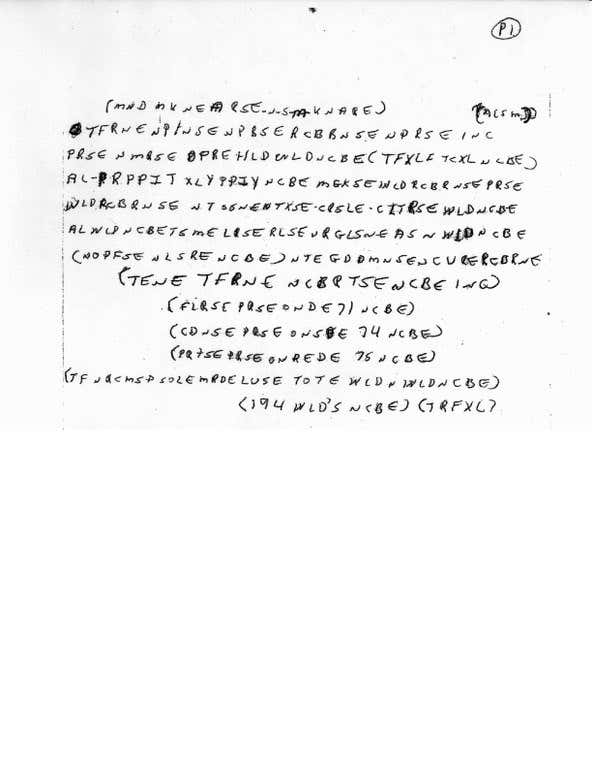 P1
(MND MKNEARSE-N-S-M-KNARE) (ACSM)
TFRNENPINSENPBSERCBBNSENPRSEINC
PRSENMRSEOPREHLDWLDNCBE(TFXLFTCXLNCBE)
AL-PRPPITXLYPPIYNCBEMGKSEWLDRCBRNSEPRSE
WLDRCBRNSENTSGNENTXSE-CRSLE-CITRSEWLDNCBE
ALWLDNCBETSMELRSERLSEURGLSNEASNWLDNCBE
(NOPFSENLSRENCBE)NTEGDDMNSENCURERCBRNE
(TENETFRNENCBRTSENCBEING)
(FLRSEPRSEONDE71NCBE)
(CDNSEPRSEONSDE74NCBE)
(PRTSEPRSEONREDE75NCBE)
(TFNRCMSPSOLEMRDELUSETOTEWLDNWLDNCBE)
(194WLD'SNCBE)(TRFXL)